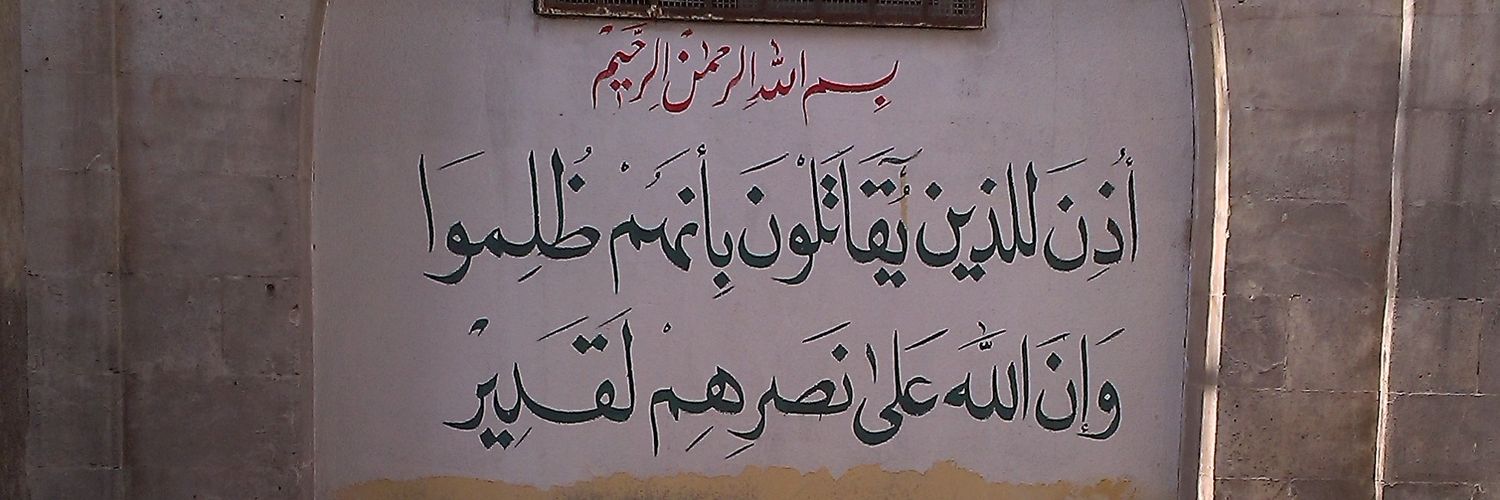 بِسمِ اللهِ الرحمٰنِ الرحِيمِ
أُذِنَ للذين يُقَاتَلُونَ بِأنهَمْ ظُلِموَا
وَإنَ اللَّه عَلىٰ نَصَرِهِمْ لَقَدِيرْ